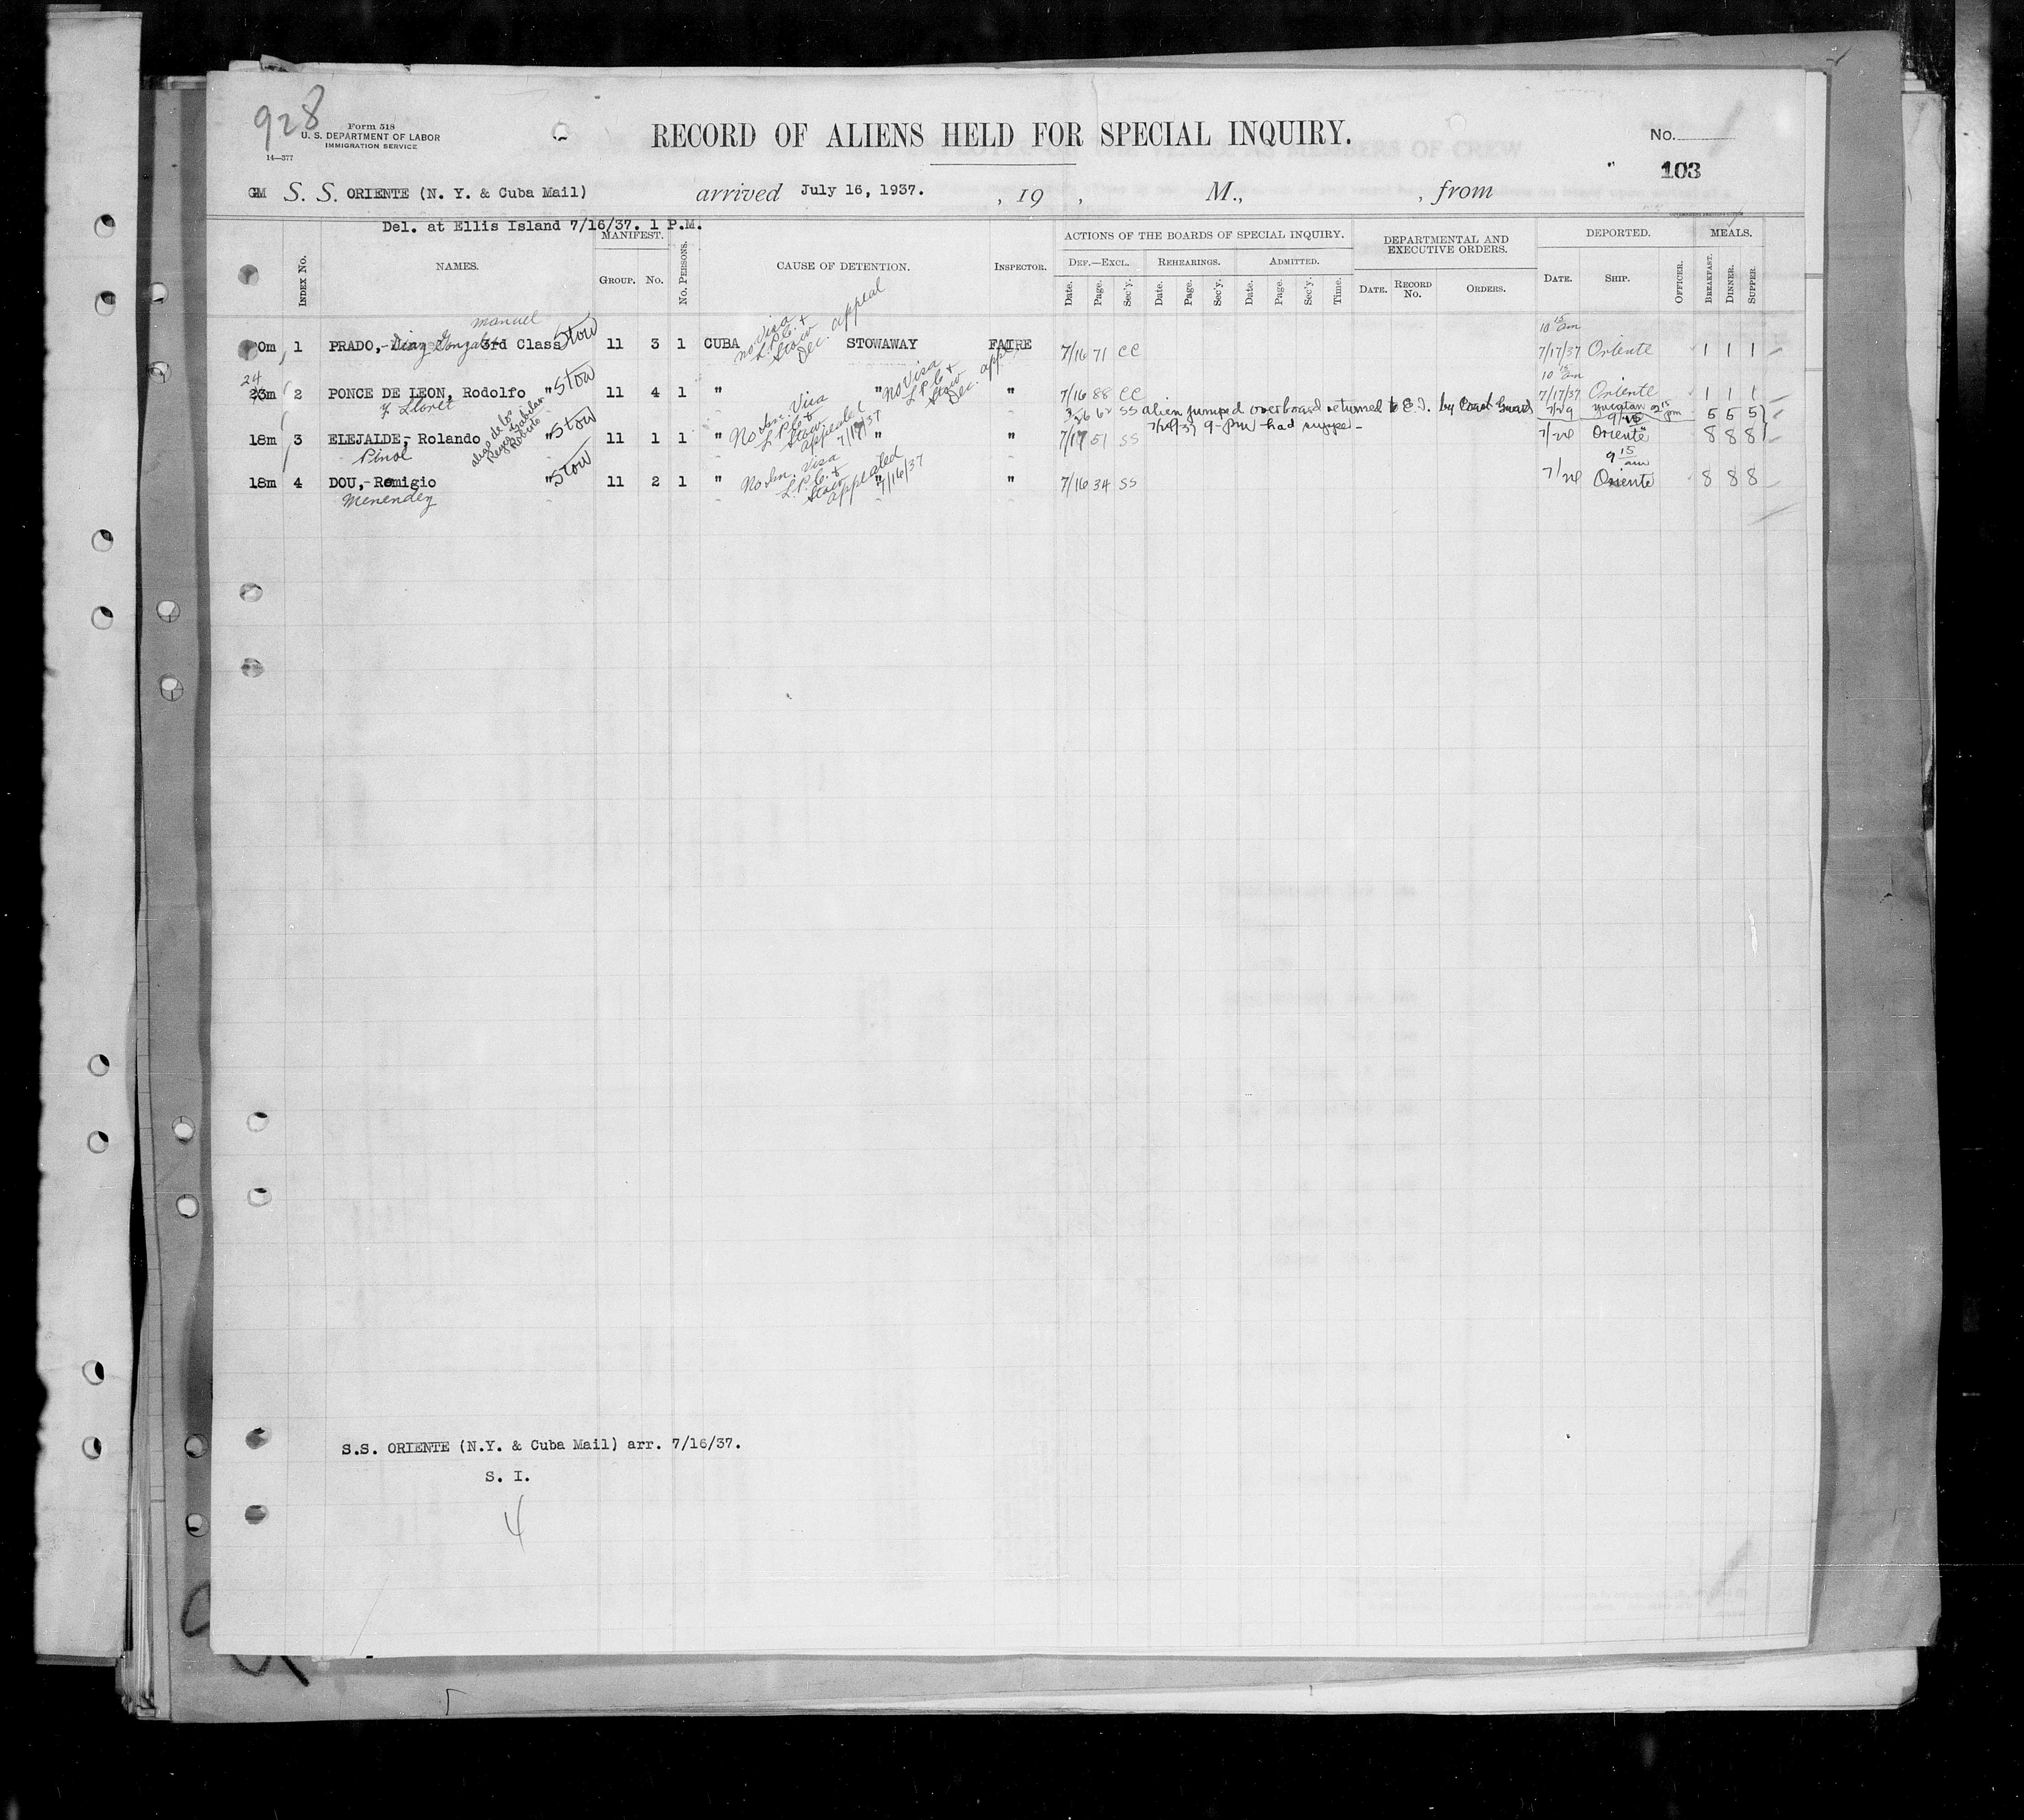 928
Form 518
U. S. DEPARTMENT OF LABOR
IMMIGRATION SERVICE
14—377
RECORD OF ALIENS HELD FOR SPECIAL INQUIRY.
No.
103
GM S. S. ORIENTE (N. Y. & Cuba Mail) arrived July 16, 1937. , 19 , M., , from
Del. at Ellis Island 7/16/37. 1 P.M.
INDEX No. NAMES. MANIFEST. GROUP. No. No. PERSONS. CAUSE OF DETENTION. INSPECTOR. ACTIONS OF THE BOARDS OF SPECIAL INQUIRY. DEPARTMENTAL AND EXECUTIVE ORDERS. DEPORTED. MEALS.
DEF.—EXCL. REHEARINGS. ADMITTED.
Date. Page. Sec'y. Date. Page. Sec'y. Date. Page. Sec'y. Time. DATE. RECORD No. ORDERS. DATE. SHIP. OFFICER. BREAKFAST. DINNER. SUPPER.
manuel
0m 1 PRADO,- 3rd Class Stow 11 3 1 CUBA no. Visa L.P.C. + Stow Dec. appeal STOWAWAY FAIRE 7/16 71 CC 10 15 am 7/17/37 Oriente 1 1 1
24
23m 2 PONCE DE LEON, Rodolfo " Stow 11 4 1 " " No Visa L.P.C + Stow Dec. " 7/16 88 CC 10 15 am 7/17/37 Oriente 1 1 1
Lloret
alien jumped overboard returned to E.I. by Coast Guard 7/29 Yucatan 5 5 5
alias de los Reyes Roberto
18m 3 ELEJALDE,- Rolando " Stow 11 1 1 " No Visa L.P.C + Stow appealed 7/17/37 " " 7/17 51 SS 9-PM had Oriente 8 8 8
Pinol
18m 4 DOU,-Remigio " Stow 11 2 1 " Visa L.P.C. + Stow appealed 7/16/37 " " 7/16 34 SS 9 15 am Oriente 8 8 8
Menendez
S.S. ORIENTE (N.Y. & Cuba Mail) arr. 7/16/37.
S. I.
4